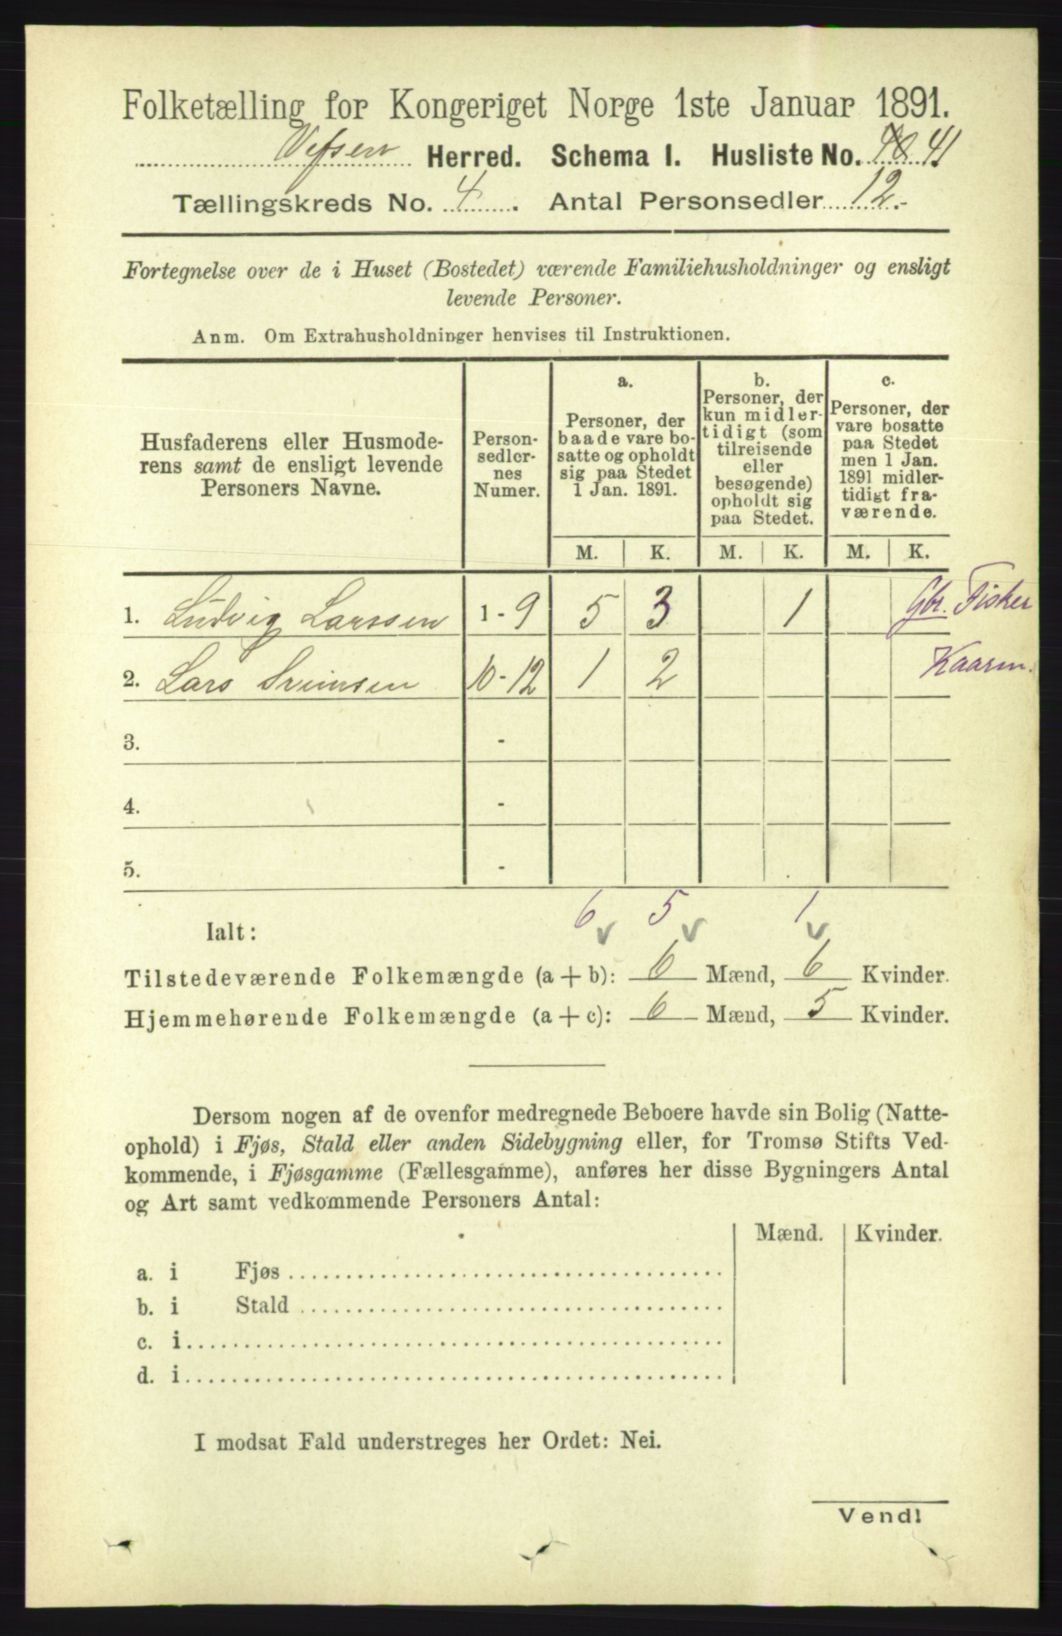 Folketælling for Kongeriget Norge 1ste Januar 1891.
Vefsen Herred. Schema I. Husliste No. 40 41
Tællingskreds No. 4. Antal Personsedler 12.-
Fortegnelse over de i Huset (Bostedet) værende Familiehusholdninger og ensligt
levende Personer.
Anm. Om Extrahusholdninger henvises til Instruktionen.
Husfaderens eller Husmode-
rens samt de ensligt levende
Personers Navne.
Person-
sedler-
nes
Numer.
a.
Personer, der
baade vare bo-
satte og opholdt
sig paa Stedet
1 Jan. 1891.
b.
Personer, der
kun midler-
tidigt (som
tilreisende
eller
besøgende)
opholdt sig
paa Stedet.
c.
Personer, der
vare bosatte
paa Stedet
men 1 Jan.
1891 midler-
tidigt fra-
værende.
M. K. M. K. M. K.
1. Ludvig Larssen 1-9 5 3 1 Gbr. Fisker
2. Lars 10-12 1 2 Kaarm.
3. -
4. -
5. -
Ialt: 6 5 1
Tilstedeværende Folkemængde (a + b): 6 Mænd, 6 Kvinder.
Hjemmehørende Folkemængde (a + c): 6 Mænd, 5 Kvinder.
Dersom nogen af de ovenfor medregnede Beboere havde sin Bolig (Natte-
ophold) i Fjøs, Stald eller anden Sidebygning eller, for Tromsø Stifts Ved-
kommende, i Fjøsgamme (Fællesgamme), anføres her disse Bygningers Antal
og Art samt vedkommende Personers Antal:
Mænd. Kvinder.
a. i Fjøs
b. i Stald
c. i
d. i
I modsat Fald understreges her Ordet: Nei.
Vend!